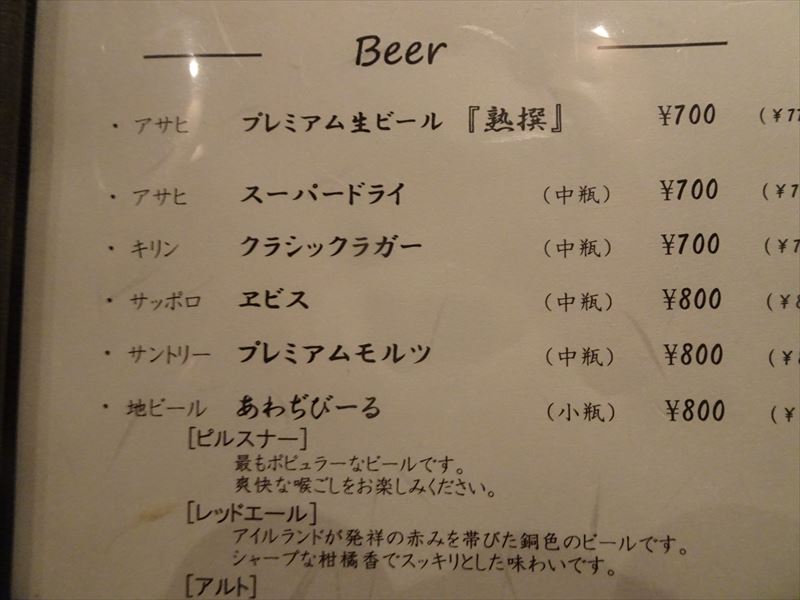 Beer
・ アサヒ プレミアム生ビール 『熟撰』 ¥700 (¥77
・ アサヒ スーパードライ (中瓶) ¥700 (¥7
・ キリン クラシックラガー (中瓶) ¥700 (¥7
・ サッポロ ヱビス (中瓶) ¥800 (¥8
・ サントリー プレミアムモルツ (中瓶) ¥800 (¥8
・ 地ビール あわぢびーる (小瓶) ¥800 (¥
[ピルスナー]
最もポピュラーなビールです。
爽快な喉ごしをお楽しみください。
[レッドエール]
アイルランドが発祥の赤みを帯びた銅色のビールです。
シャープな柑橘香でスッキリとした味わいです。
[アルト]